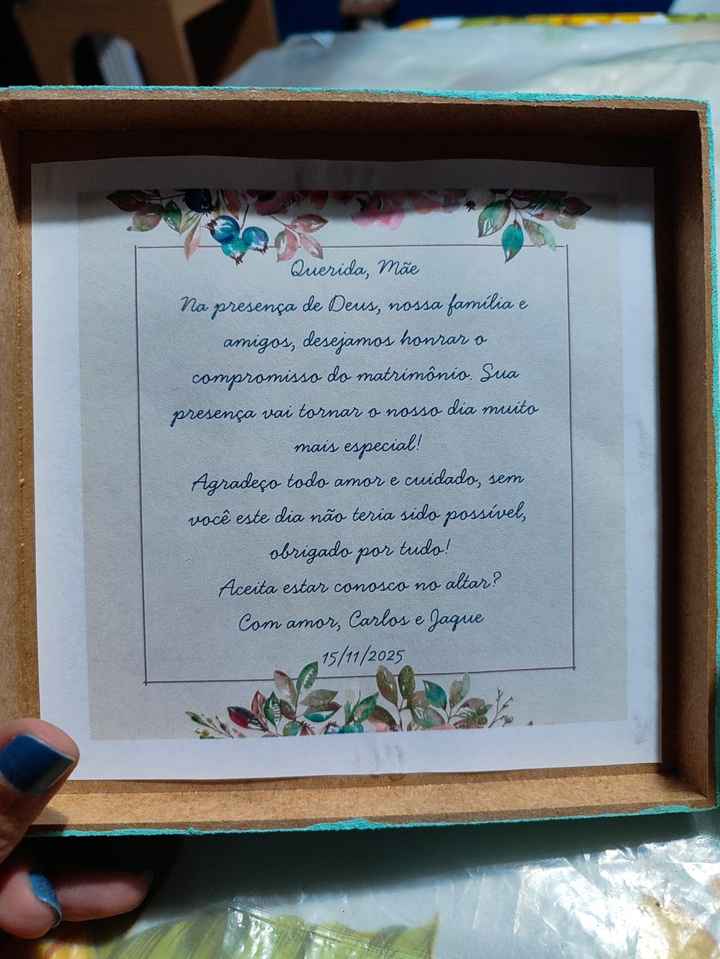 Querida, Mãe
Na presença de Deus, nossa família e
amigos, desejamos honrar o
compromisso do matrimônio. Sua
presença vai tornar o nosso dia muito
mais especial!
Agradeço todo amor e cuidado, sem
você este dia não teria sido possível,
obrigado por tudo!
Aceita estar conosco no altar?
Com amor, Carlos e Jaque
15/11/2025